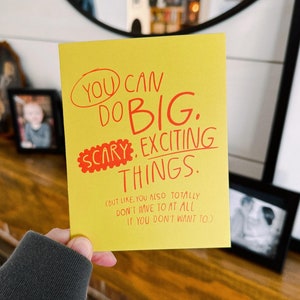 YOU CAN
DO BIG,
SCARY, EXCITING
THINGS.
(BUT LIKE, YOU ALSO TOTALLY
DON'T HAVE TO AT ALL
IF YOU DON'T WANT TO.)